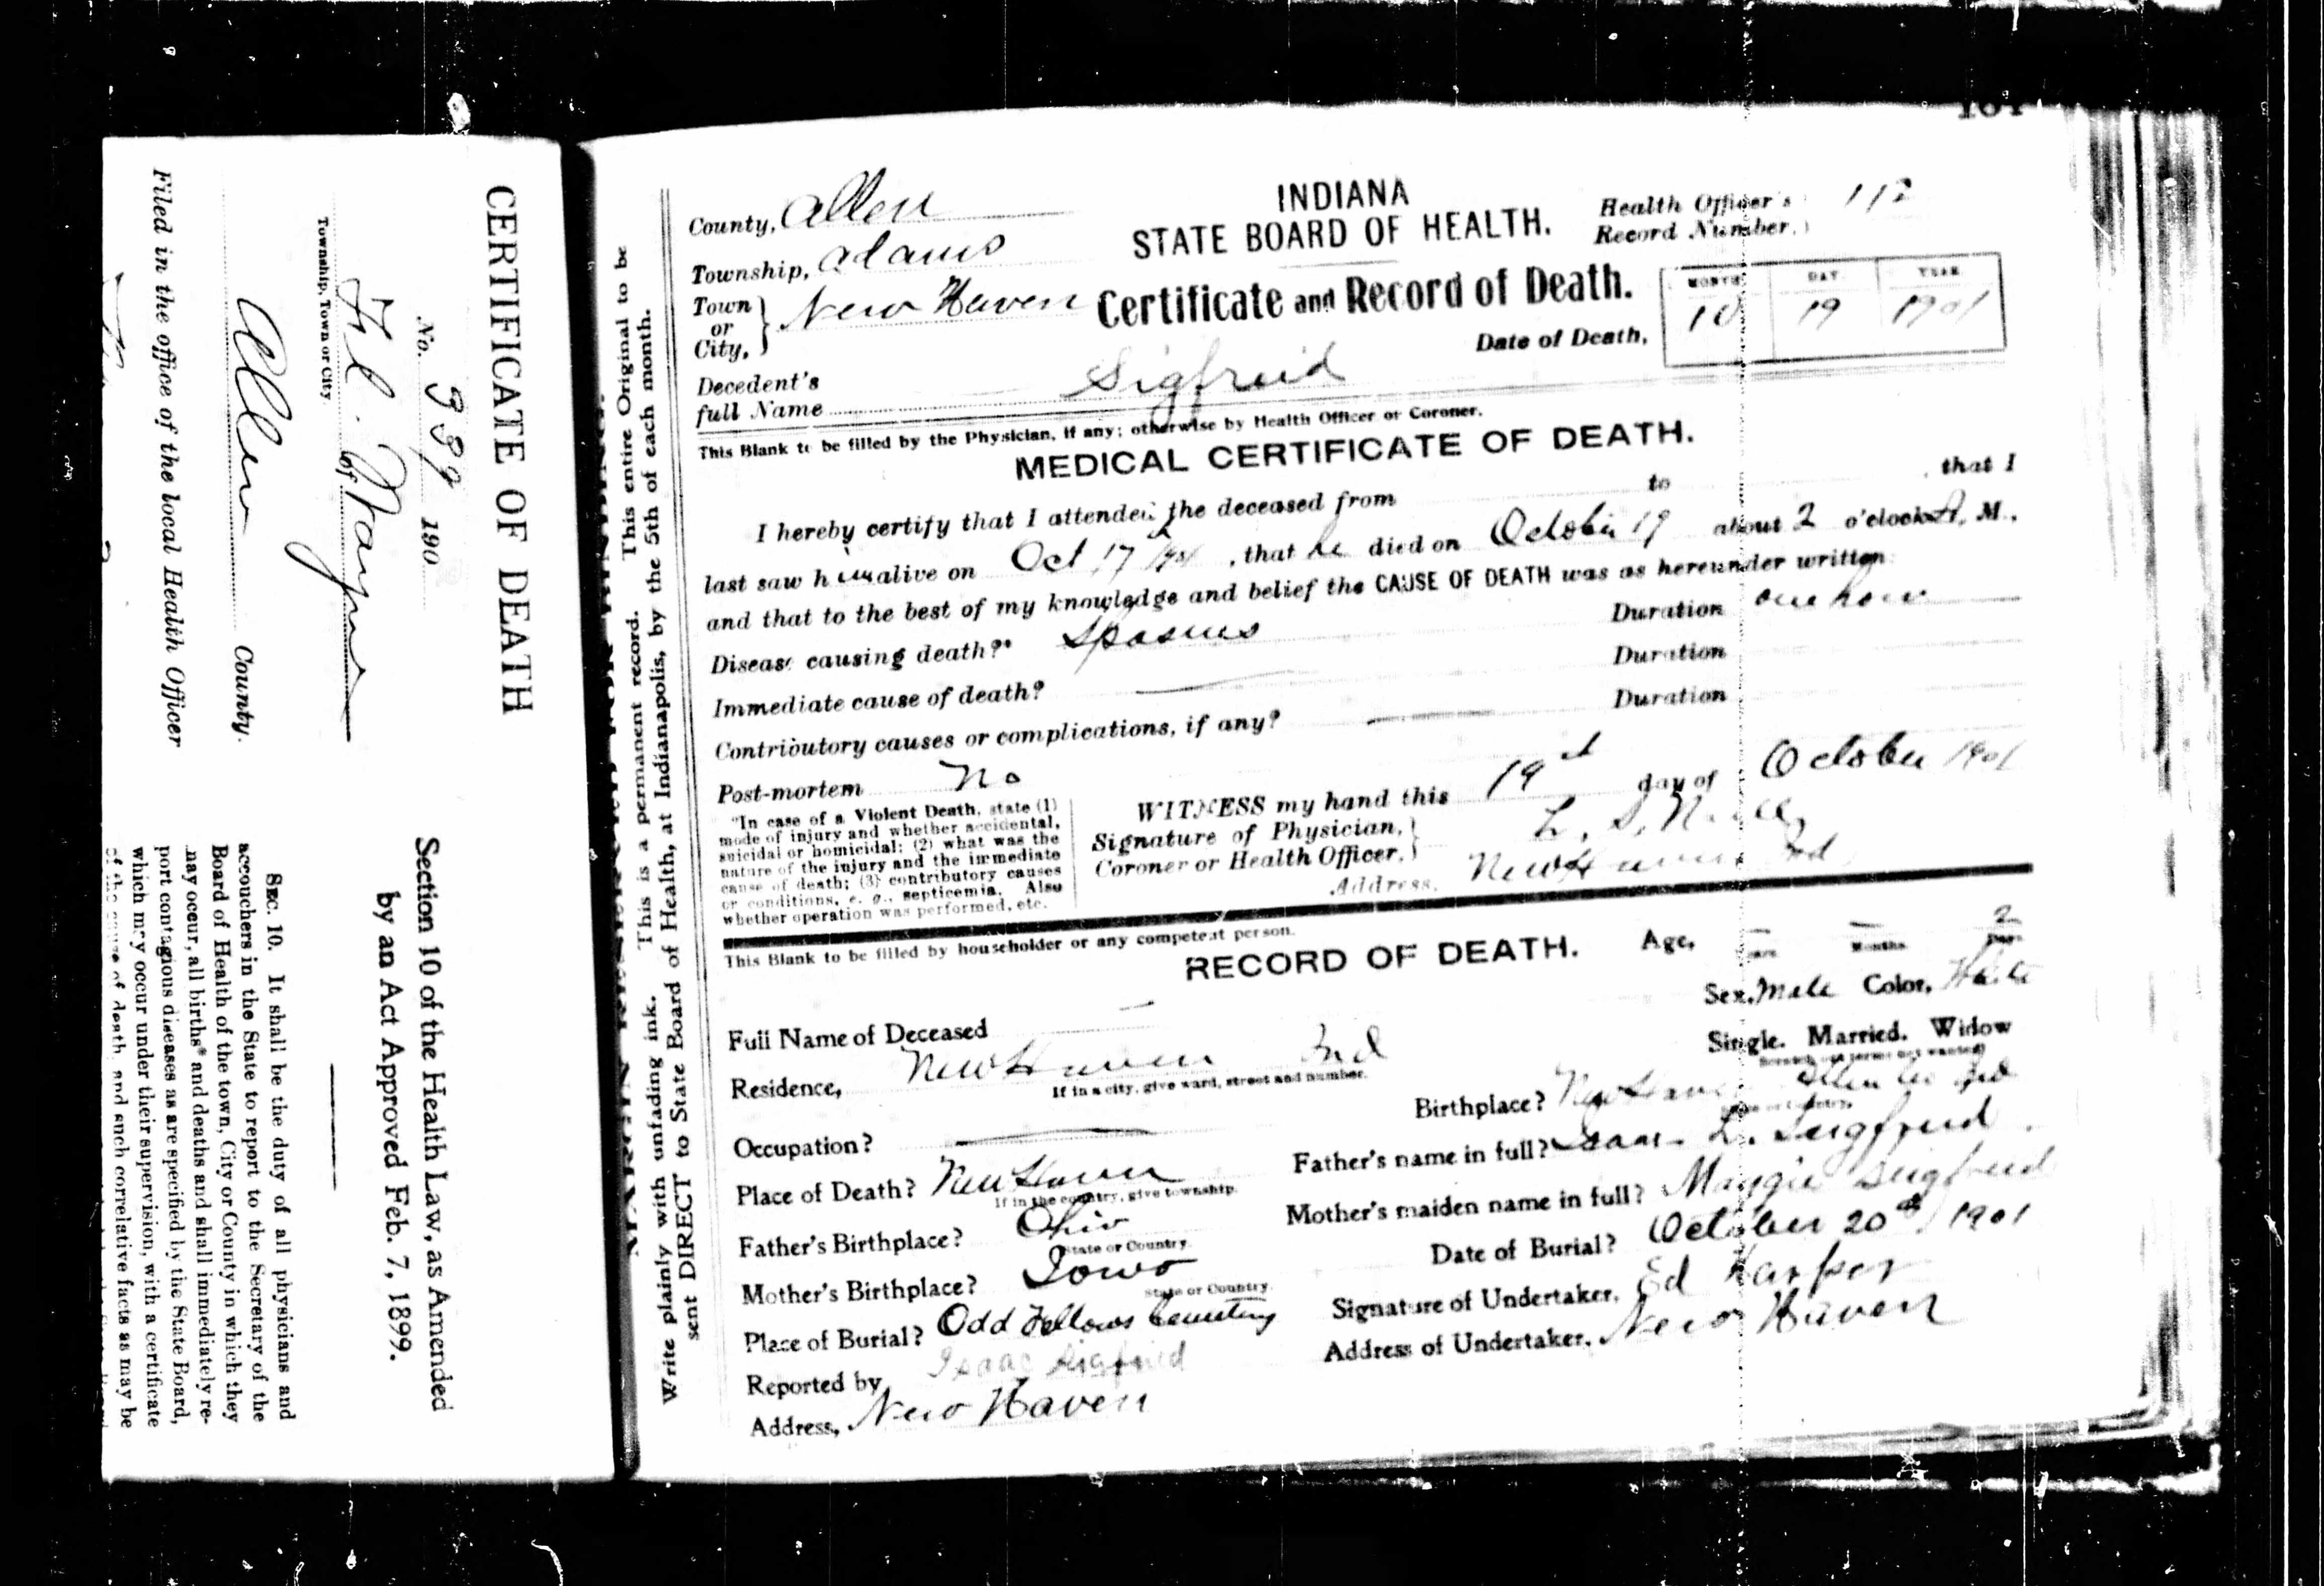 CERTIFICATE OF DEATH
No. 339 190
Ft. Wayne
Township, Town or City
of
Allen County.
Filed in the office of the local Health Officer
Section 10 of the Health Law, as Amended
by an Act Approved Feb. 7, 1899.
SEC. 10. It shall be the duty of all physicians and
accouchers in the State to report to the Secretary of the
Board of Health of the town, City or County in which they
may occur, all births* and deaths and shall immediately re-
port contagious diseases as are specified by the State Board,
which may occur under their supervision, with a certificate
of the cause of death, and such correlative facts as may be
This is a permanent record. This entire Original to be
Write plainly with unfading ink.
sent DIRECT to State Board of Health, at Indianapolis, by the 5th of each month.
INDIANA
STATE BOARD OF HEALTH.
Health Officer's
Record Number. 112
County, Allen
Township, Adams
Town or City, New Haven
Certificate and Record of Death.
Date of Death,
MONTH DAY YEAR
10 19 1901
Decedent's
full Name Sigfreid
This Blank to be filled by the Physician, if any; otherwise by Health Officer or Coroner.
MEDICAL CERTIFICATE OF DEATH.
I hereby certify that I attended the deceased from to , that I
last saw him alive on Oct 17th , that he died on October 19 about 2 o'clock A. M.,
and that to the best of my knowledge and belief the CAUSE OF DEATH was as hereunder written
Disease causing death?* Spasms Duration one hour
Immediate cause of death? Duration
Contributory causes or complications, if any? Duration
Post-mortem No
"In case of a Violent Death, state (1)
mode of injury and whether accidental,
suicidal or homicidal; (2) what was the
nature of the injury and the immediate
cause of death; (3) contributory causes
or conditions, e. g., septicemia. Also
whether operation was performed, etc.
WITNESS my hand this 19 day of October 1901
Signature of Physician,
Coroner or Health Officer. L. S.
Address. New Haven Ind
This Blank to be filled by householder or any competent person.
RECORD OF DEATH.
Age, Years Months 2 Days
Sex, Male Color, White
Full Name of Deceased
Single. Married. Widow
Residence, New Haven Ind
If in a city, give ward, street and number.
Birthplace? New Haven Allen Co Ind
Occupation?
Father's name in full? Isaac L. Seigfreid
Place of Death? New Haven
If in the country, give township.
Mother's maiden name in full? Maggie Seigfreid
Father's Birthplace? Ohio
State or Country.
Date of Burial? October 20th 1901
Mother's Birthplace? Iowa
State or Country.
Signature of Undertaker, Ed Harper
Place of Burial? Odd Fellows Cemetery
Address of Undertaker. New Haven
Reported by Isaac Sigfried
Address, New Haven